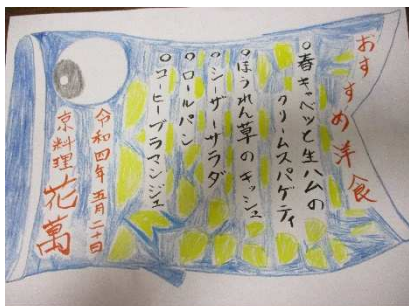 おすすめ洋食
○春キャベツと生ハムの
クリームスパゲティ
○ほうれん草のキッシュ
○シーザーサラダ
○ロールパン
○コーヒーブラマンジュ
令和四年五月二十日
京料理 花萬